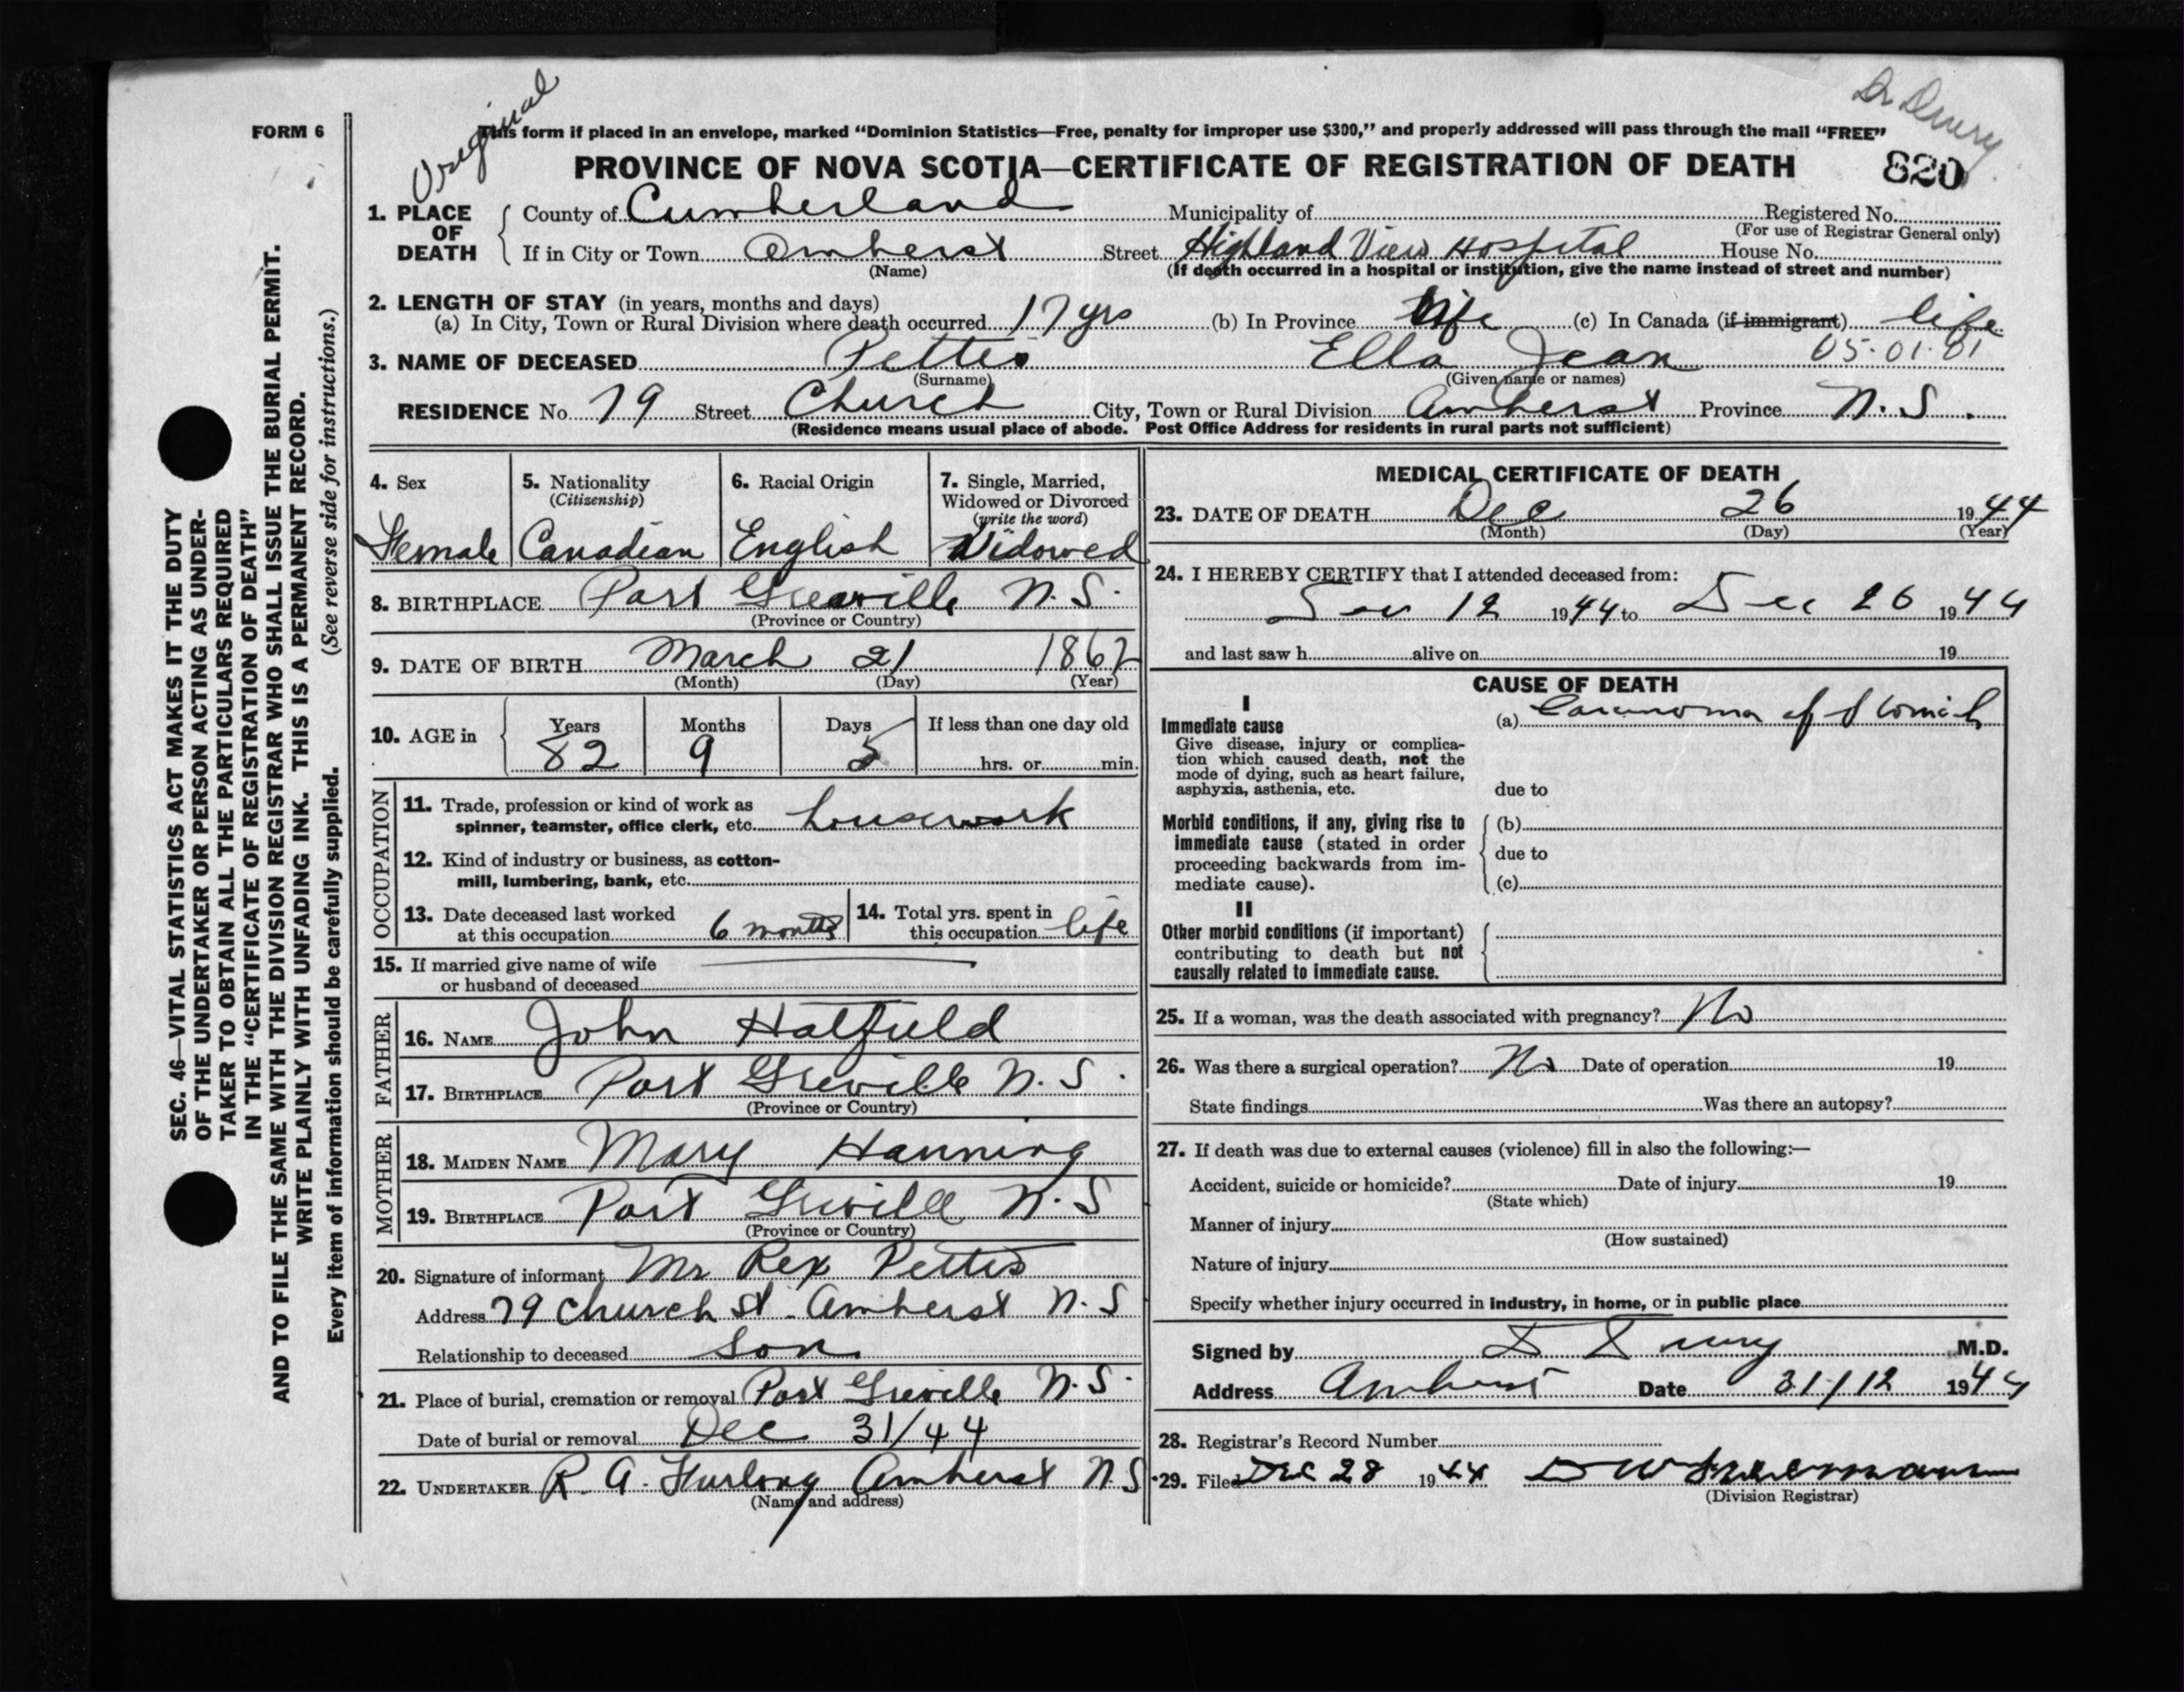 Original
Dr Drury
FORM 6
This form if placed in an envelope, marked "Dominion Statistics—Free, penalty for improper use $300," and properly addressed will pass through the mail "FREE"
PROVINCE OF NOVA SCOTIA—CERTIFICATE OF REGISTRATION OF DEATH 820
1. PLACE OF DEATH County of Cumberland Municipality of Registered No.
(For use of Registrar General only)
If in City or Town Amherst Street Highland View Hospital House No.
(Name) (If death occurred in a hospital or institution, give the name instead of street and number)
2. LENGTH OF STAY (in years, months and days)
(a) In City, Town or Rural Division where death occurred 17 yrs (b) In Province life (c) In Canada (if immigrant) life
3. NAME OF DECEASED Pettis Ella Jean 05.01.01
(Surname) (Given name or names)
RESIDENCE No 79 Street Church City, Town or Rural Division Amherst Province N.S.
(Residence means usual place of abode. Post Office Address for residents in rural parts not sufficient)
SEC. 46—VITAL STATISTICS ACT MAKES IT THE DUTY
OF THE UNDERTAKER OR PERSON ACTING AS UNDER-
TAKER TO OBTAIN ALL THE PARTICULARS REQUIRED
IN THE "CERTIFICATE OF REGISTRATION OF DEATH"
AND TO FILE THE SAME WITH THE DIVISION REGISTRAR WHO SHALL ISSUE THE BURIAL PERMIT.
WRITE PLAINLY WITH UNFADING INK. THIS IS A PERMANENT RECORD.
Every item of information should be carefully supplied. (See reverse side for instructions.)
4. Sex 5. Nationality 6. Racial Origin 7. Single, Married,
(Citizenship) Widowed or Divorced
(write the word)
Female Canadian English Widowed
8. BIRTHPLACE Port Greville N.S.
(Province or Country)
9. DATE OF BIRTH March 21 1862
(Month) (Day) (Year)
10. AGE in Years Months Days If less than one day old
82 9 5 hrs. or min.
OCCUPATION
11. Trade, profession or kind of work as
spinner, teamster, office clerk, etc. housework
12. Kind of industry or business, as cotton-
mill, lumbering, bank, etc.
13. Date deceased last worked
at this occupation 6 months
14. Total yrs. spent in
this occupation life
15. If married give name of wife
or husband of deceased
FATHER
16. NAME John Hatfield
17. BIRTHPLACE Port Greville N.S.
(Province or Country)
MOTHER
18. MAIDEN NAME Mary Hanning
19. BIRTHPLACE Port Greville N.S
(Province or Country)
20. Signature of informant Mr Rex Pettis
Address 79 Church St. Amherst N.S
Relationship to deceased Son
21. Place of burial, cremation or removal Port Greville N.S.
Date of burial or removal Dec 31/44
22. UNDERTAKER R. A. Furlong Amherst N.S
(Name and address)
MEDICAL CERTIFICATE OF DEATH
23. DATE OF DEATH Dec 26 1944
(Month) (Day) (Year)
24. I HEREBY CERTIFY that I attended deceased from:
12 1944 to Dec 26 1944
and last saw h alive on 19
CAUSE OF DEATH
I
Immediate cause (a) Carcinoma of Stomach
Give disease, injury or complica-
tion which caused death, not the
mode of dying, such as heart failure,
asphyxia, asthenia, etc. due to
Morbid conditions, if any, giving rise to (b)
immediate cause (stated in order
proceeding backwards from im- due to
mediate cause). (c)
II
Other morbid conditions (if important)
contributing to death but not
causally related to immediate cause.
25. If a woman, was the death associated with pregnancy? No
26. Was there a surgical operation? No Date of operation 19
State findings Was there an autopsy?
27. If death was due to external causes (violence) fill in also the following:—
Accident, suicide or homicide? Date of injury 19
(State which)
Manner of injury
(How sustained)
Nature of injury
Specify whether injury occurred in industry, in home, or in public place
Signed by D Drury M.D.
Address Amherst Date 31/12 1944
28. Registrar's Record Number
29. Filed Dec 28 1944
(Division Registrar)